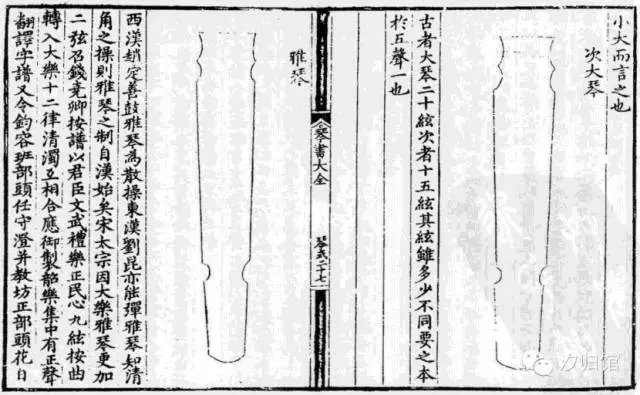 小大而言之也
次大琴
古者大琴二十絃次者十五絃其絃雖多少不同要之本
於五聲一也
琴書大全
琴式二十七
雅琴
西漢趙定善鼓雅琴為散操東漢劉昆亦能彈雅琴知清
角之操則雅琴之制自漢始矣宋太宗因大樂雅琴更加
二弦召錢堯卿按譜以君臣文武禮樂正民心九絃按曲
轉入大樂十二律清濁互相合應御製韶樂集中有正聲
翻譯字譜又令鈞容班部頭任守澄并教坊正部頭花日
汐归馆